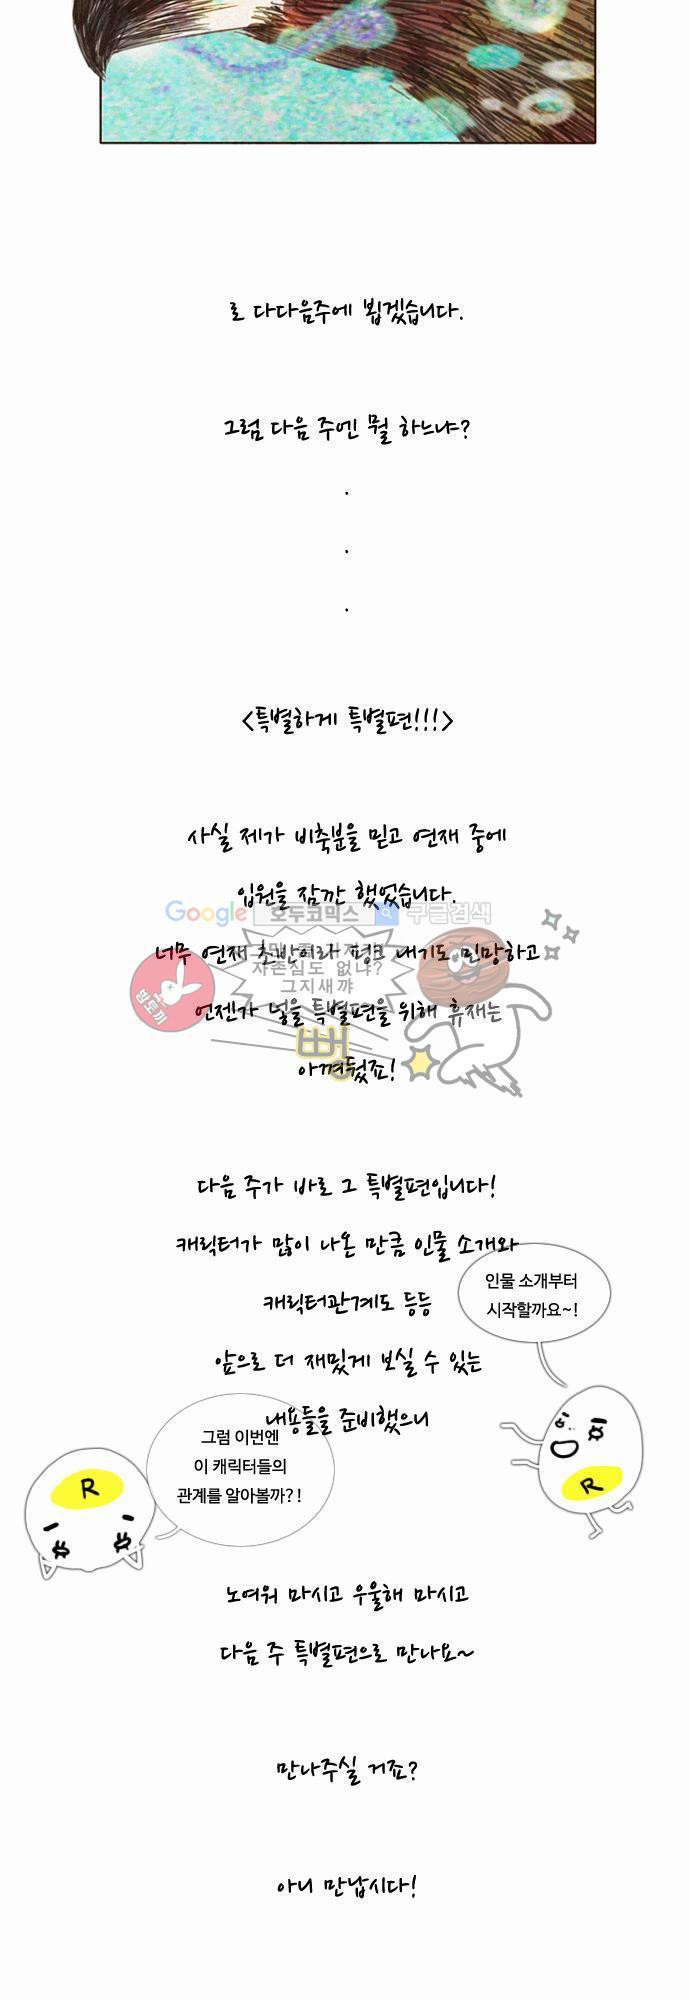 로 다다음주에 뵙겠습니다.
그럼 다음 주엔 뭘 하느냐?
.
.
.
<특별하게 특별편!!!>
사실 제가 비축분을 믿고 연재 중에
입원을 잠깐 했었습니다.
Google 호두코믹스 구글검색
너무 연재 초반이라 펑크 내기도 민망하고
자존심도 없냐?
그지새꺄
밤토끼
언젠가 넣을 특별편을 위해 휴재는
뻥
아껴뒀죠!
다음 주가 바로 그 특별편입니다!
캐릭터가 많이 나온 만큼 인물 소개와
캐릭터관계도 등등
인물 소개부터
시작할까요~!
앞으로 더 재밌게 보실 수 있는
내용들을 준비했으니
그럼 이번엔
이 캐릭터들의
관계를 알아볼까?!
R
R
노여워 마시고 우울해 마시고
다음 주 특별편으로 만나요~
만나주실 거죠?
아니 만납시다!